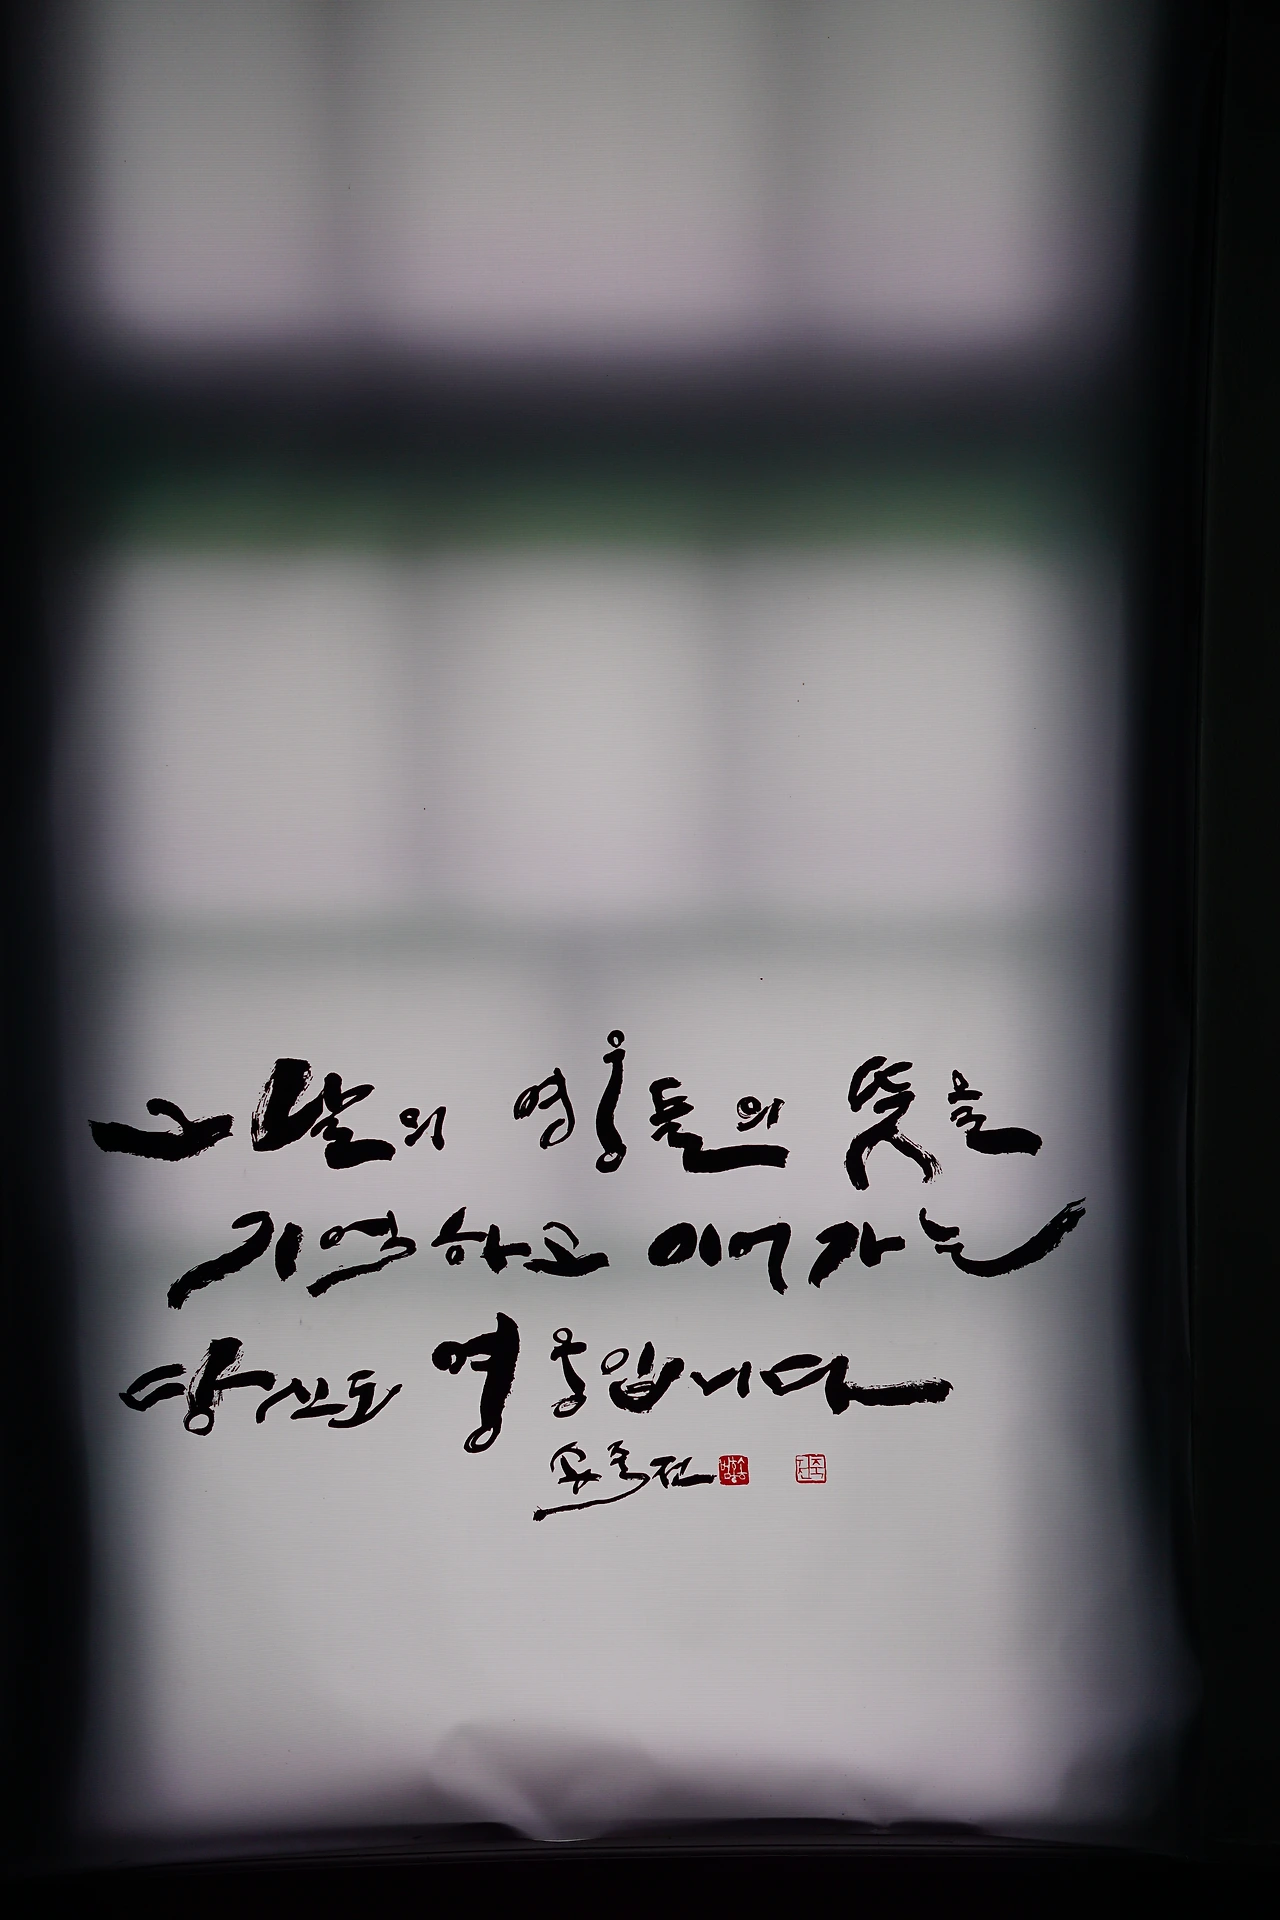 그날의 영웅들의 뜻을
기억하고 이어가는
당신도 영웅입니다